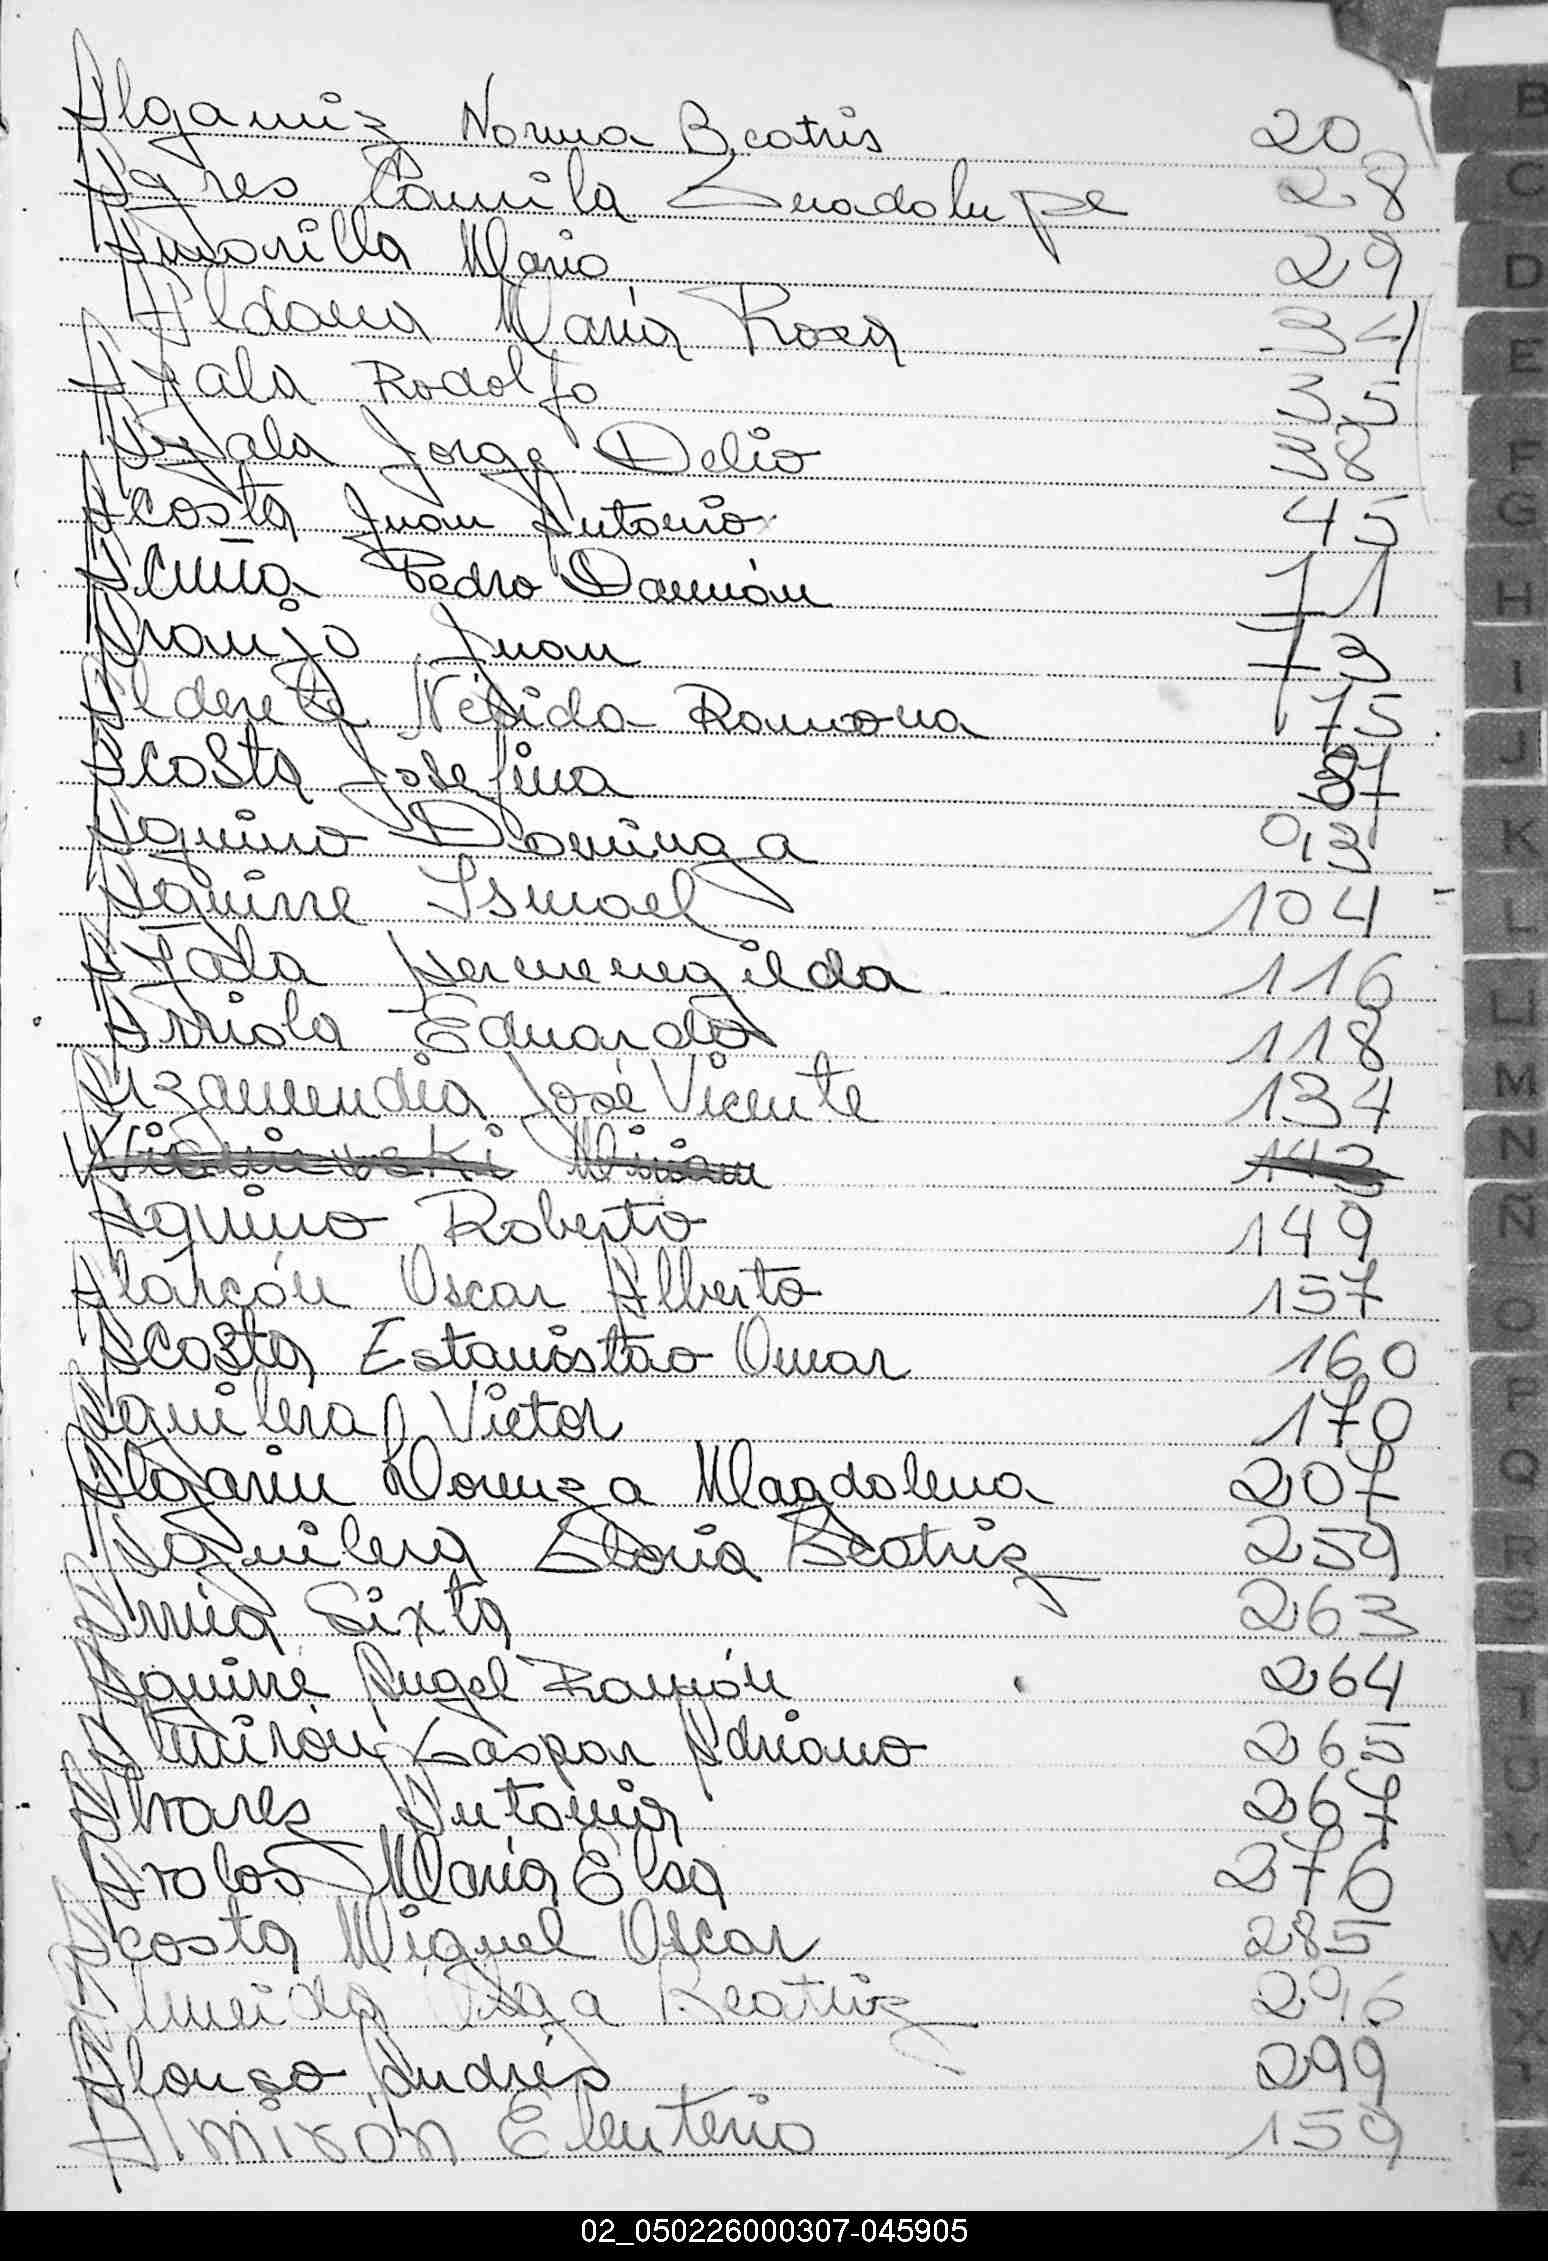 Algamiz Norma Beatris 20
Ayres Camila Guadalupe 28
Amarilla Mario 29
Aldana María Rosa 34
Ayala Rodolfo 35
Ayala Jorge Delio 38
Acosta Juan Antonio 45
Acuña Pedro Damián 71
Araujo Juan 73
Alderete Nélida Ramona 75
Acosta Josefina 87
Aquino Dominga 93
Aguirre Ismael 104
Ayala Hermenegilda 116
Arriola Eduardo 118
Arzamendia José Vicente 134
Wisniewski Miriam 143
Aquino Roberto 149
Alarcón Oscar Alberto 157
Acosta Estanislao Omar 160
Aguilera Victor 170
Algarin Lorenza Magdalena 207
Aguilera Gloria Beatriz 259
Sixta 263
Aguirre Angel Ramón 264
Almirón Gaspar Adriano 265
Alvarez Antonia 267
Avalos María Elsa 276
Acosta Miguel Oscar 285
Almeida Beatriz 296
Alonso Andrés 299
Almirón Eleuterio 159
B
C
D
E
F
G
H
I
J
K
L
LL
M
N
Ñ
O
P
Q
R
S
T
U
V
W
X
Z
02_050226000307-045905